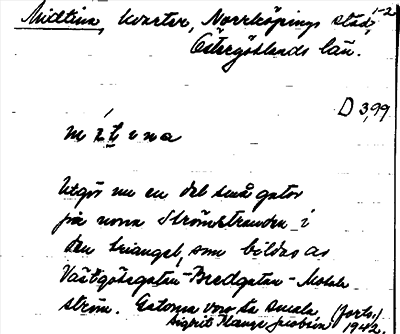 Midtina, kvarter, Norrköpings stad, 1-2
Östergötlands län.
D 3,99
mítina
Utgör nu en del små gator
på norra Strömstranden i
den triangel, som bildas av
Västgötegatan-Bredgatan-Motala
ström. Gatorna voro så smala (forts.)
Sigrid 1942.